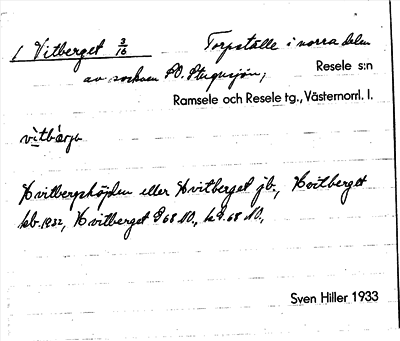 1 Vitberget 3/16 Torpställe i norra delen
av socknen SO. Stugusjön, Resele s:n
Ramsele och Resele tg., Västernorrl. l.
vìtbærjə
Hvitbergshöjden eller Hvitberget jb., Hvitberget
kb. 1932, Hvitberget G 68 NO., kG. 68 NO.,
Sven Hiller 1933